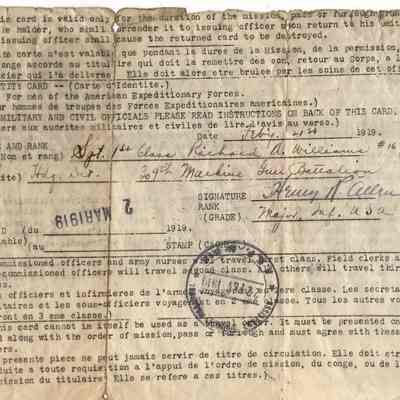 is card is valid only for the duration of the mission, pass or furlough gran
he holder, who shall surrender it to issuing officer upon return to his unit
issuing officer shall cause the returned card to be destroyed.
te carte n'est valable que pendant la duree de la mission, de la permission,
onge accorde au titulaire qui doit la remettre des son, retour au Corps, a l
icier qui l'a delivree. Elle doit alors etre brulee par les soins de cet off
TITY CARD - (Carte d'Identite.)
For men of the American Expeditionary Forces.
r hommes de troupes des Forces Expeditionaires americaines.)
MILITARY AND CIVIL OFFICIALS PLEASE READ INSTRUCTIONS ON BACK OF THIS CARD.
ers aux autorites militaires et civiles de lire l'avis au verso.)
Date Feb. 1919.
AND RANK
Nom et rang) Sgt. 1st Class Richard A. Williams #16
ite) Hdq. Det. Machine Gun Battalion
SIGNATURE Henry A. Allen
RANK
(GRADE) Major, Inf. U S A
D (du 1919.
lable)
(au STAMP (CA
2 MAR 1919
issioned officers and army nurses travel first class. Field clerks a
commissioned officers will travel second class. others will travel thir
s.
officiers et infirmieres de l'armee voyage ere classe. Les secreta
itaires et les sous-officiers voyagent en 2 eme classe. Tous les autres vo
ront en 3 eme classe.)
his card cannot in itself be used as a travel order. It must be presented on
d along with the order of mission, pass or furlough and must agree with thes
ers.
presente piece ne peut jamais servir de titre de circulation. Elle doit etre
duite a toute requisition a l'appui de l'ordre de mission, du conge, ou de l
mission du titulaire. Elle se refere a ces titres.)